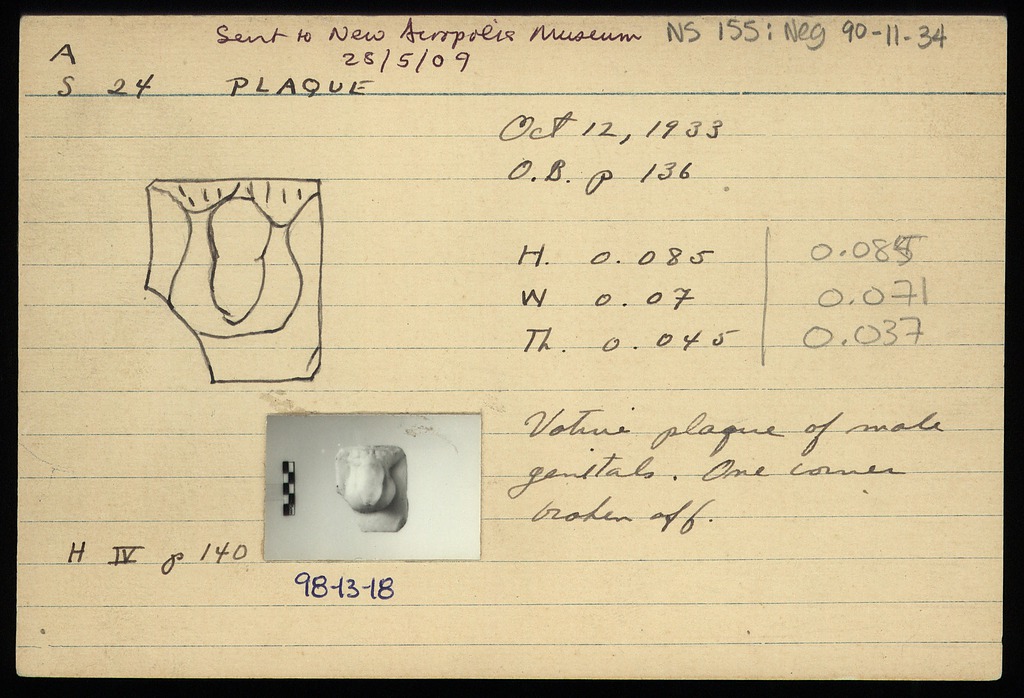 Sent to New Acropolis Museum
28/5/09
NS 155: Neg 90-11-34
A
S 24 PLAQUE
Oct 12, 1933
O.B. p 136
H. 0.085 0.085
W 0.07 0.071
Th. 0.045 0.037
Votive plaque of male
genitals. One corner
broken off.
H IV p 140
98-13-18